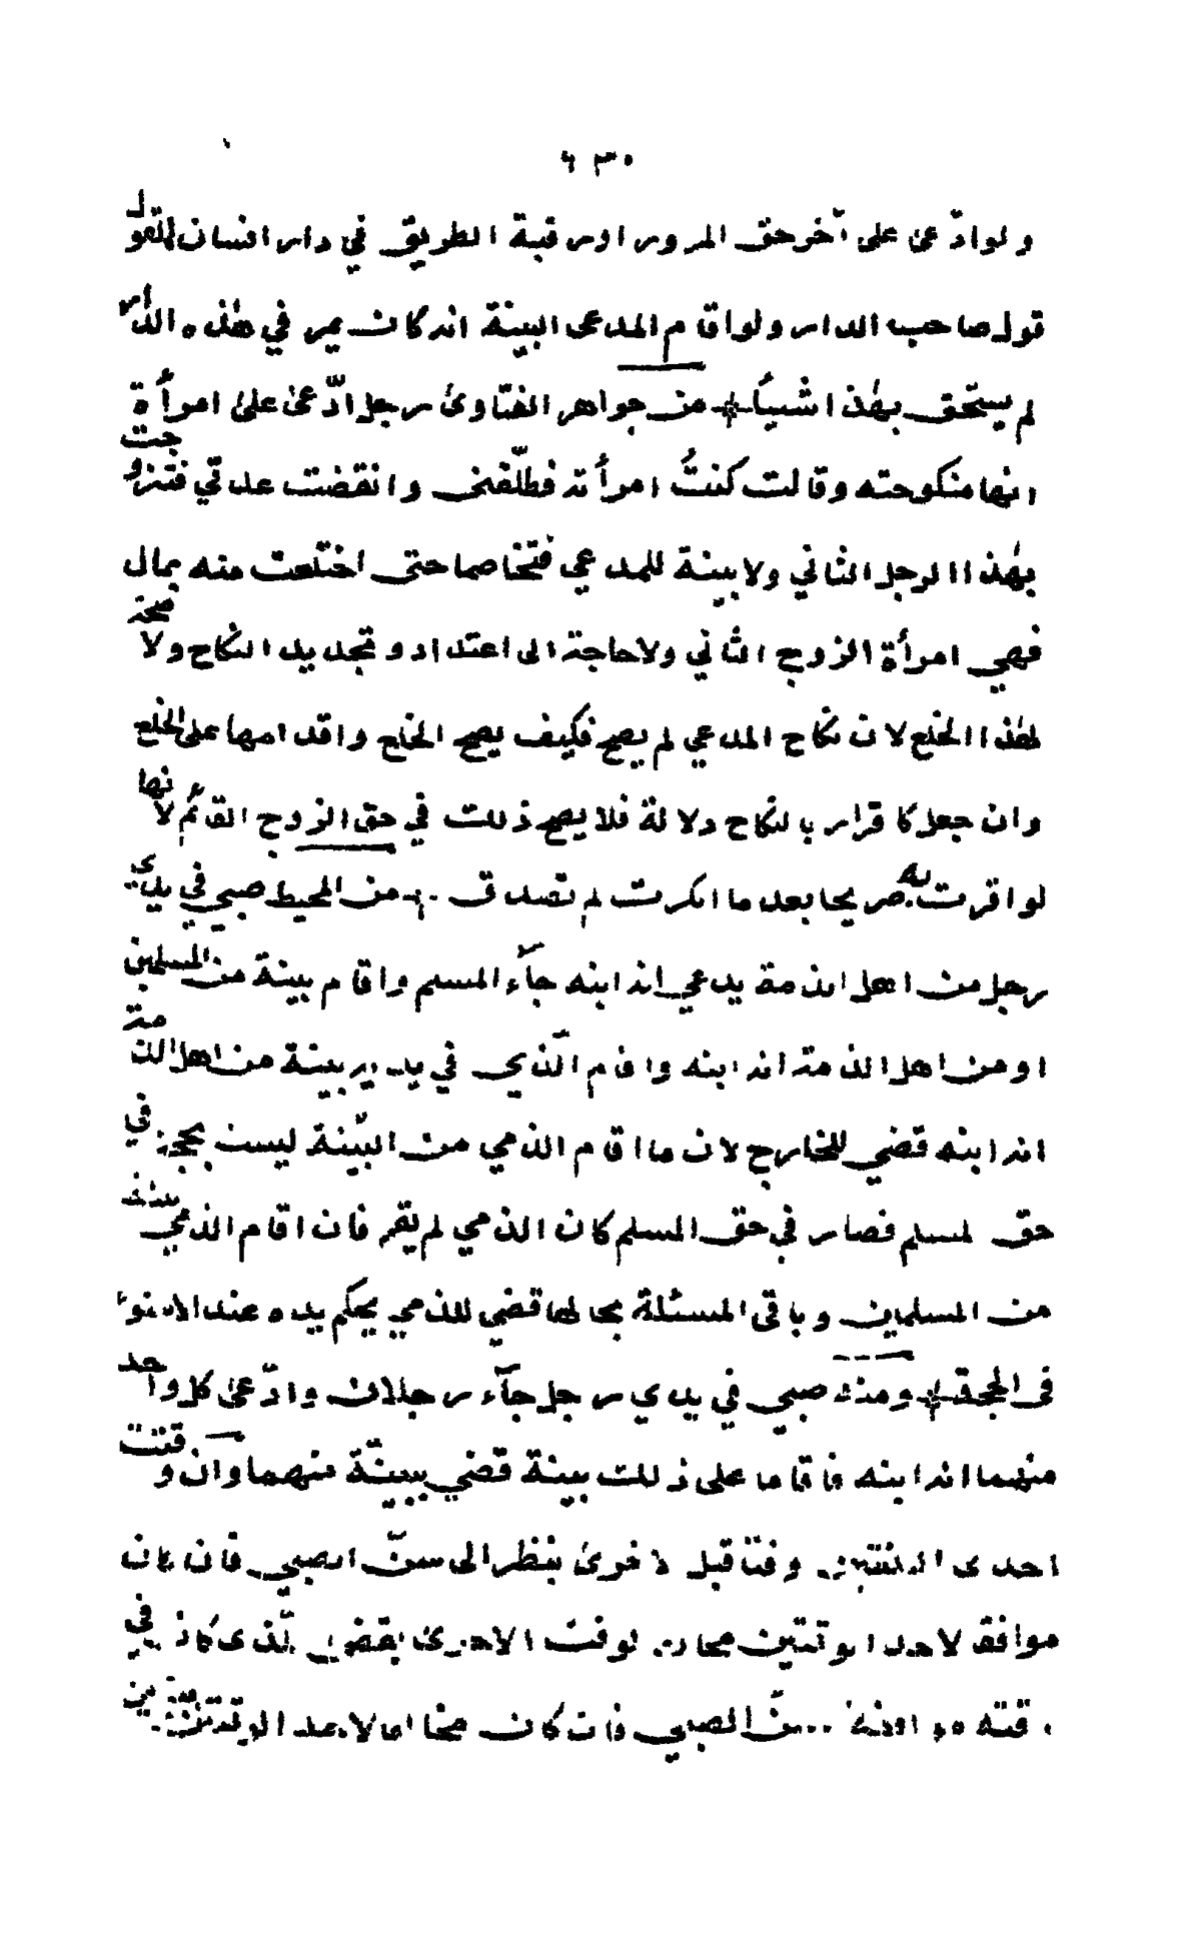 ٦٣٠
ولو ادّعى على آخر حق المرور او رقبة الطريق في دار انسان فالقول
قول صاحب الدار ولو اقام المدعى البينة انه كان يمر في هٰذه الدار
لم يستحق بهٰذا شيئًا من جواهر الفتاوىٰ رجل ادّعىٰ علىٰ امرأة
انها منكوحته وقالت كنتُ امرأته فطلّقنى وانقضت عدتي فتزوجت
بهٰذا الرجل الثاني ولا بينة للمدعي فتخاصما حتى اختلعت منه بمال
فهي امرأة الزوج الثاني ولا حاجة الى اعتداد وتجديد النكاح ولا صحة
لهٰذا الخلع لان نكاح المدعي لم يصح فكيف يصح الخلع واقدامها على الخلع
وان جعل كاقرار بالنكاح دلالة فلا يصح ذلك في حق الزوج القائم لانها
لو اقرت به صريحا بعد ما انكرت لم تصدق من المحيط صبي في يدي
رجل من اهل الذمة يدعي انه ابنه جآء المسلم واقام بينة من المسلمين
او من اهل الذمة انه ابنه واقام الّذي في يديه بينة من اهل الذمة
انه ابنه قضي للخارج لان ما اقام الذمي من البيّنة ليست بحجة في
حق المسلم فصار في حق المسلم كان الذمي لم يقم فان اقام الذمي بينة
من المسلمين وباقى المسئلة بحالها قضي للذمي بحكم يده عند الاستواء
فى الحجة ومنه صبي في يدي رجل جآء رجلان وادّعىٰ كل واحد
منهما انه ابنه فاقاما على ذلك بينة قضي ببينّة منهما وان وقتت
احدى البينتين وقتا قبل الاخرىٰ ينظر الى سنّ الصبي فان كان
موافقا لاحد الوقتين مخالف لوقت الاخرىٰ يقضى للّذى كان في
وقته موافقة سنّ الصبي فان كان مخالفا لاحد الوقتين